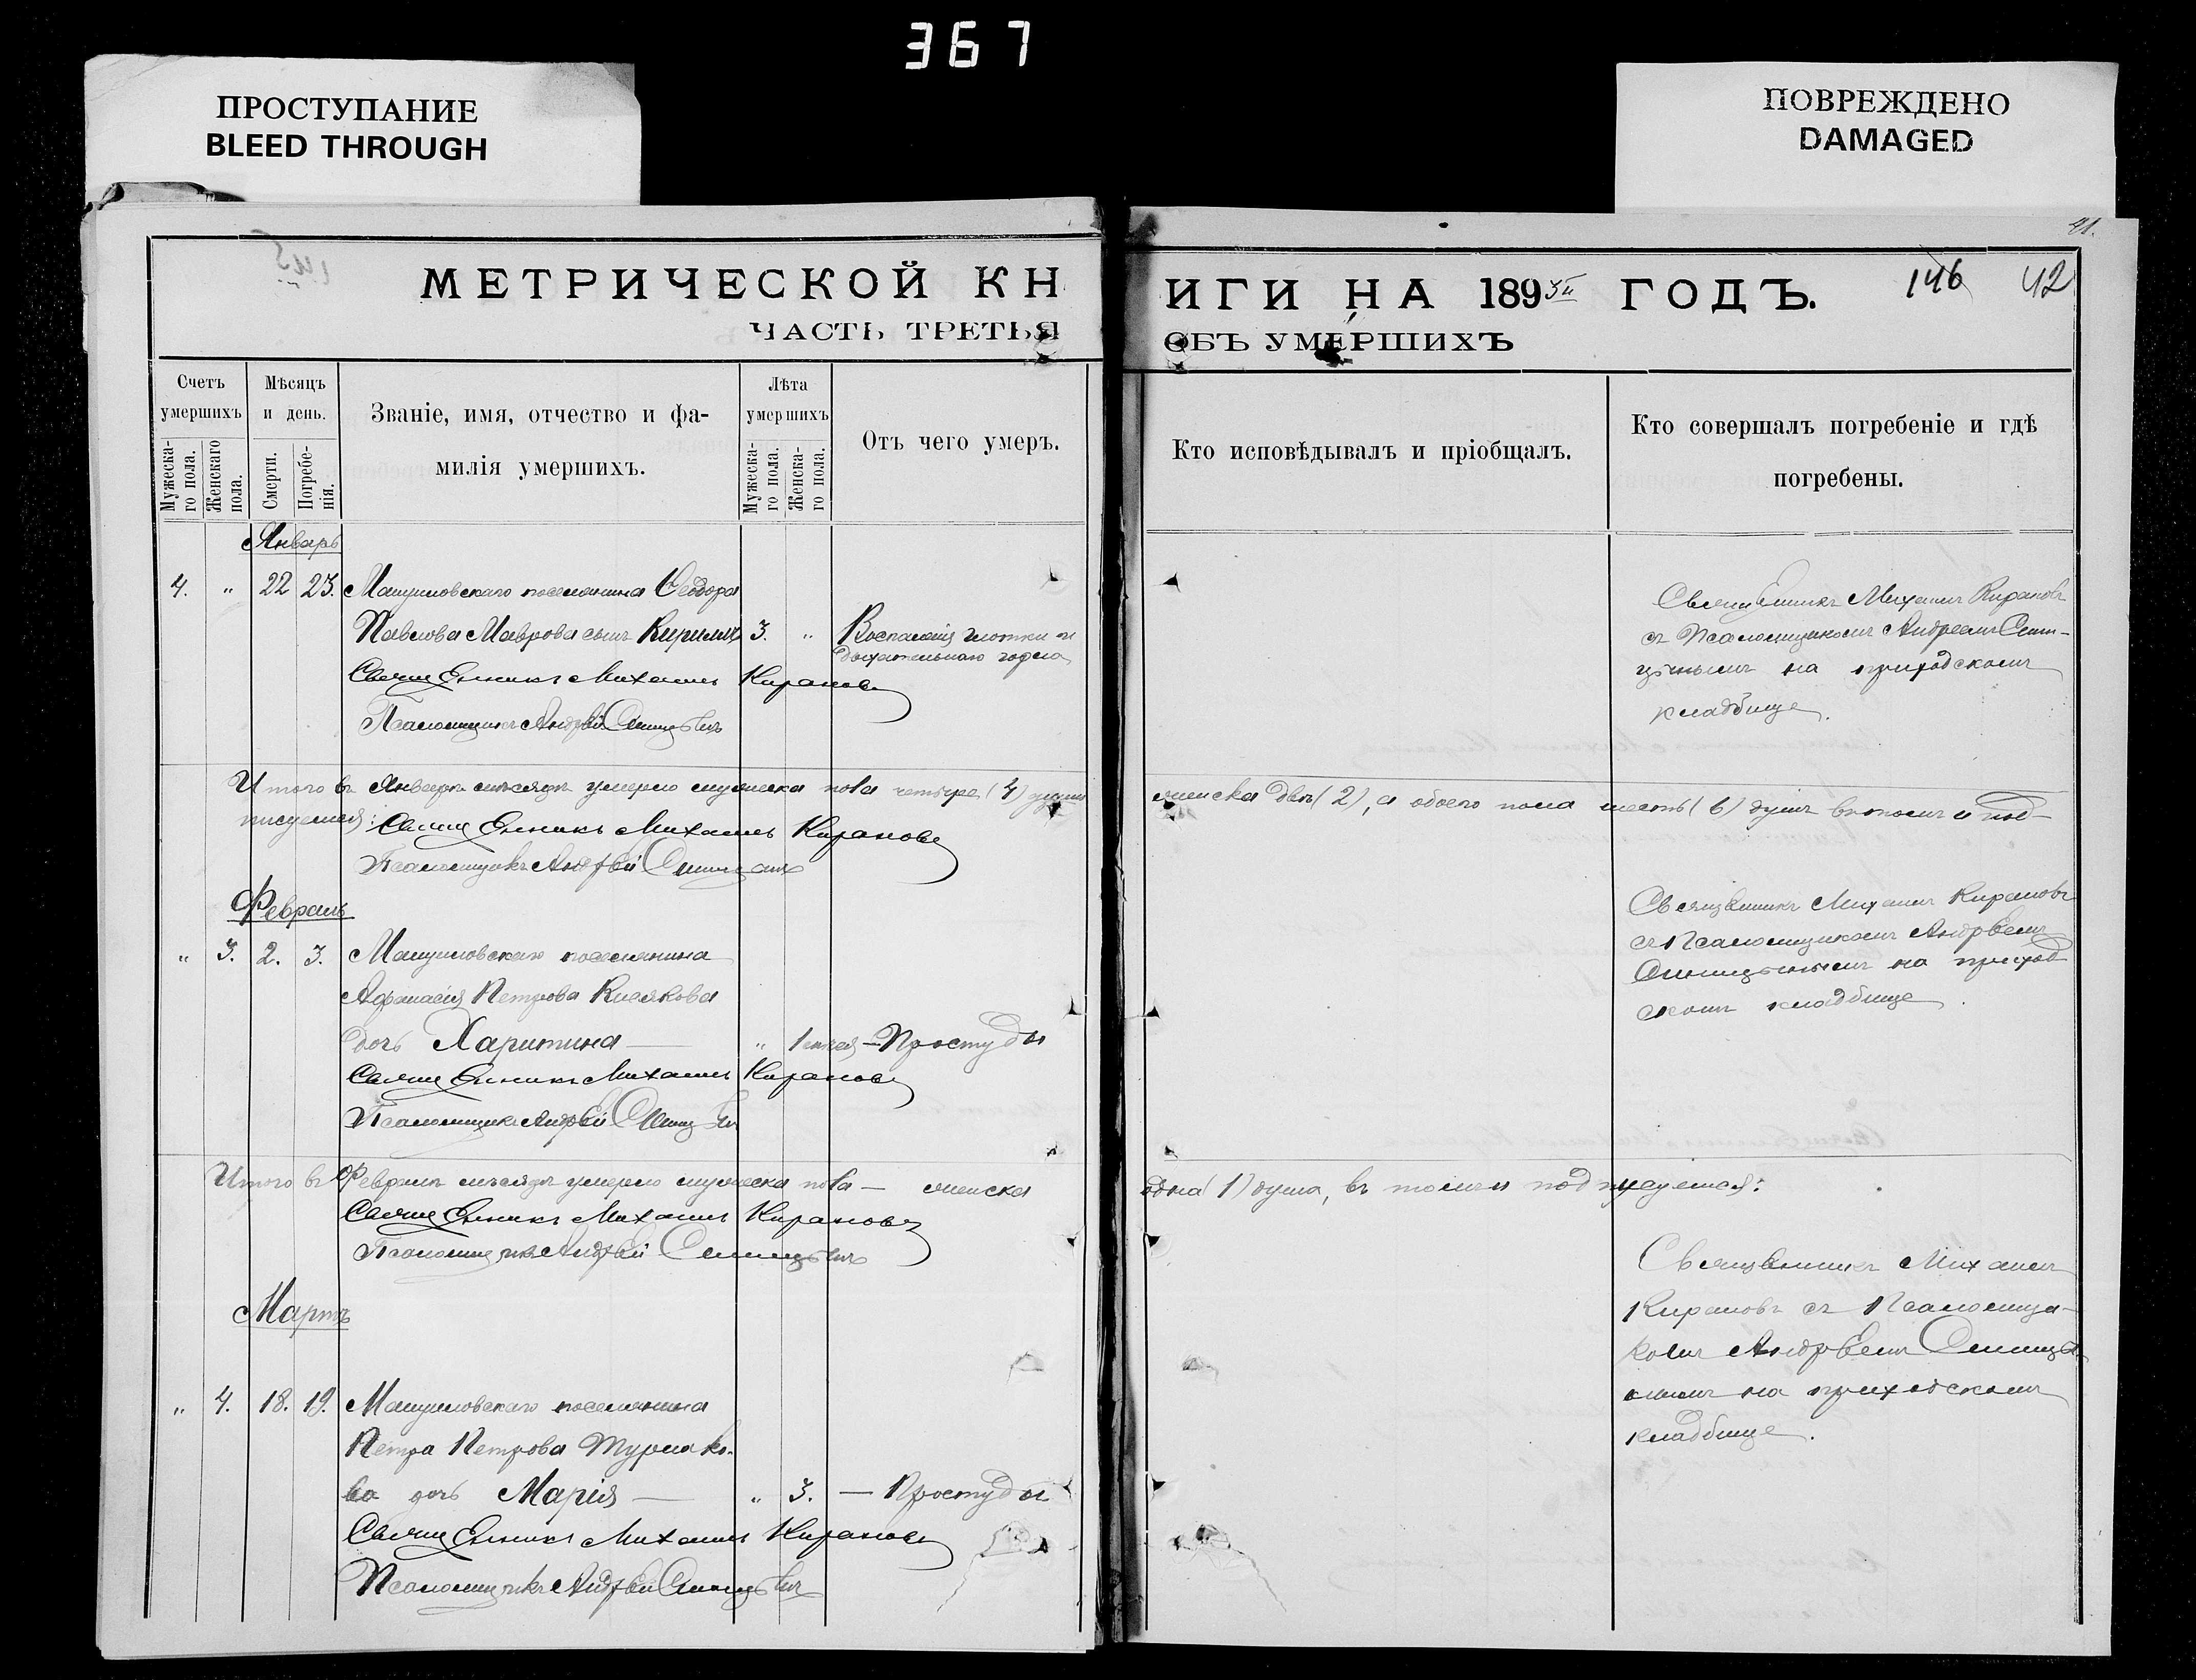 367
ПРОСТУПАНИЕ
BLEED THROUGH
ПОВРЕЖДЕНО
DAMAGED
41.
МЕТРИЧЕСКОЙ КНИГИ НА 189 ГОДЪ.
146 42
ЧАСТЬ ТРЕТЬЯ ОБЪ УМЕРШИХЪ
Счетъ умершихъ
Мужеска-
го пола.
Женскаго
пола.
Мѣсяцъ
и день.
Смерти.
Погребе-
нія.
Званіе, имя, отчество и фа-
милія умершихъ.
Лѣта
умершихъ
Мужеска-
го пола.
Женска-
го пола.
Отъ чего умеръ.
Кто исповѣдывалъ и пріобщалъ.
Кто совершалъ погребеніе и гдѣ
погребены.
Январь
4. " 22 23. поселянина Ѳеодора
Павлова Маврова сынъ Кириллъ 3. " Воспаленія глотки и
дыхательнаго горла
Священникъ Михаилъ Кирановъ
Псаломщикъ Андрей
Священникъ Михаилъ Кирановъ
съ Псаломщикомъ Андреемъ
на приходскомъ
кладбище.
Итого въ Январѣ мѣсяцѣ умерло мужеска пола четыре (4) души
женска двѣ (2), а обоего пола шесть (6) душъ въ томъ и под-
писуемся: Священникъ Михаилъ Кирановъ
Псаломщикъ Андрей
Февраль
" 3. 2. 3. поселянина
Афанасія Петрова Кисякова
дочь Харитина — " — Простуды
Священникъ Михаилъ Кирановъ
Псаломщикъ Андрей
Священникъ Михаилъ Кирановъ
съ Псаломщикомъ Андреемъ
на приход
скомъ кладбище.
Итого въ Февралѣ мѣсяцѣ умерло мужеска пола — женска
одна (1) душа, въ томъ и подписуемся:
Священникъ Михаилъ Кирановъ
Псаломщикъ Андрей
Мартъ
" 4. 18. 19. поселянина
Петра Петрова
ва дочь Марія — " 3. — Простуды
Священникъ Михаилъ Кирановъ
Псаломщикъ Андрей
Священникъ Михаилъ
Кирановъ съ Псаломщи-
комъ Андреемъ
на приходскомъ
кладбище.